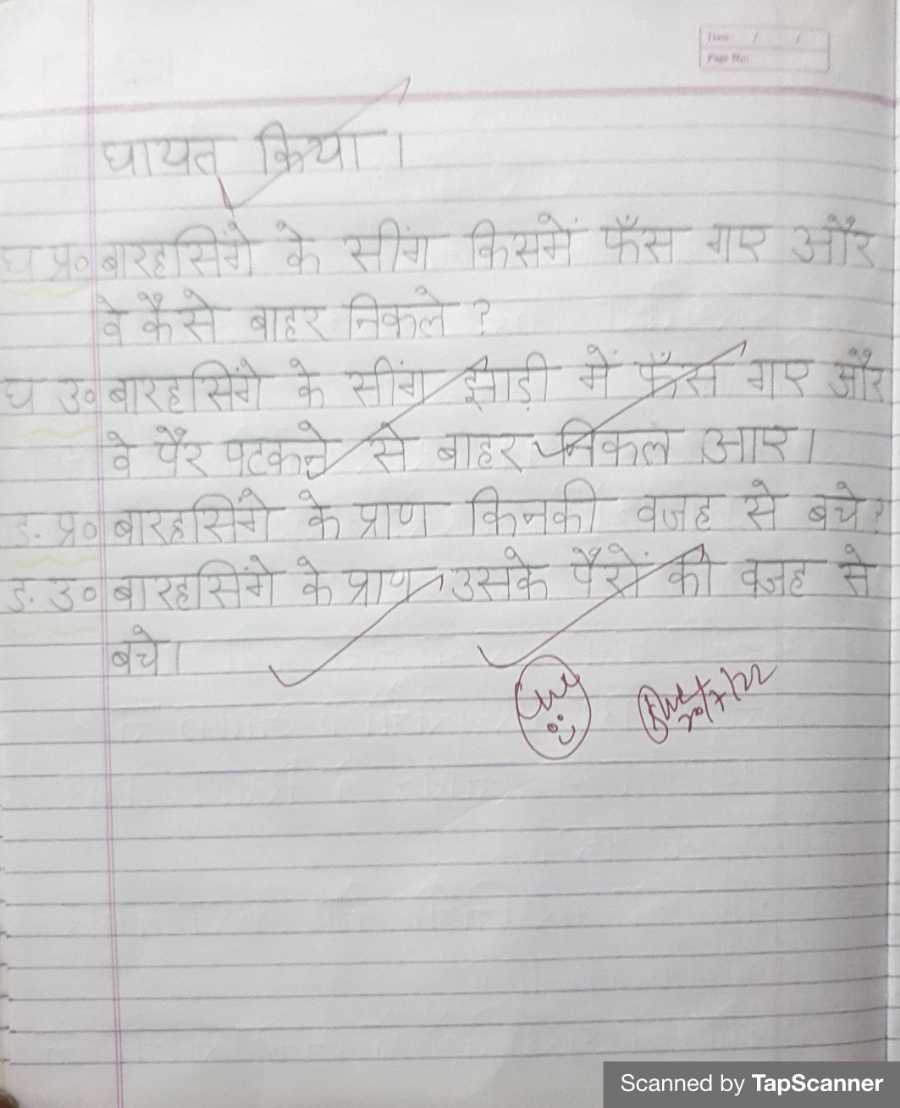 Date: / /
Page No:
घायल किया।
घ प्र० बारहसिंगे के सींग किसमें फँस गए और
वे कैसे बाहर निकले ?
घ उ० बारहसिंगे के सींग झाड़ी में फँस गए और
वे पैर पटकने से बाहर निकल आए।
ड. प्र० बारहसिंगे के प्राण किनकी वजह से बचे?
ड. उ० बारहसिंगे के प्राण उसके पैरों की वजह से
बचे।
20/7/22
Scanned by TapScanner